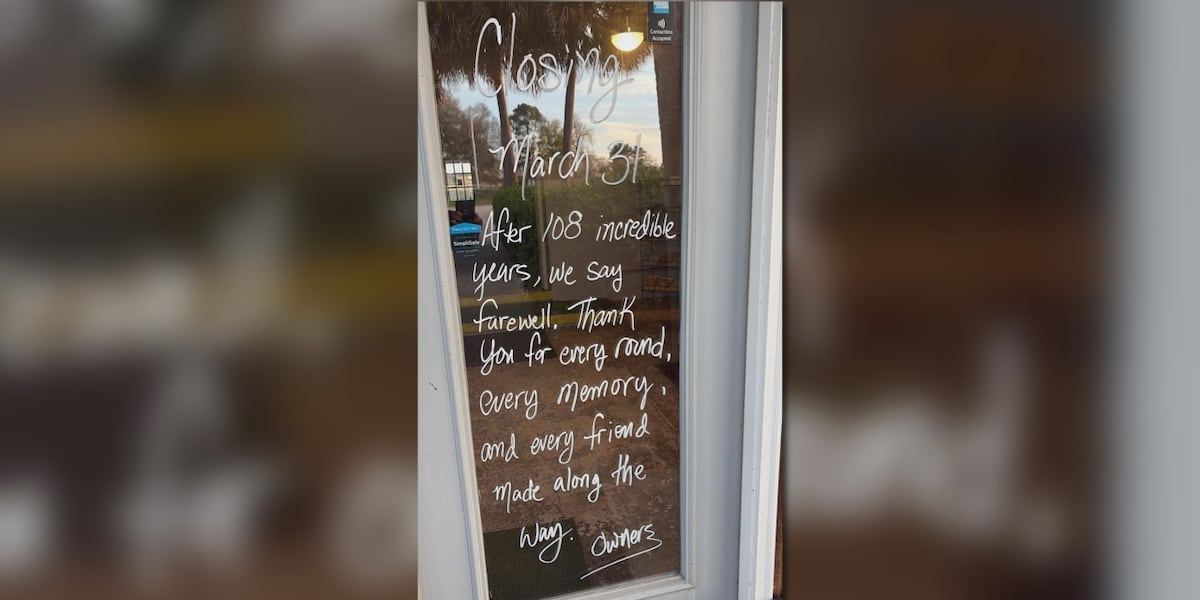 Contactless
Accepted
Closing
March 31
After 108 incredible
years, we say
farewell. Thank
You for every round,
every memory,
and every friend
made along the
way. Owners
PROTECTED
SimpliSafe